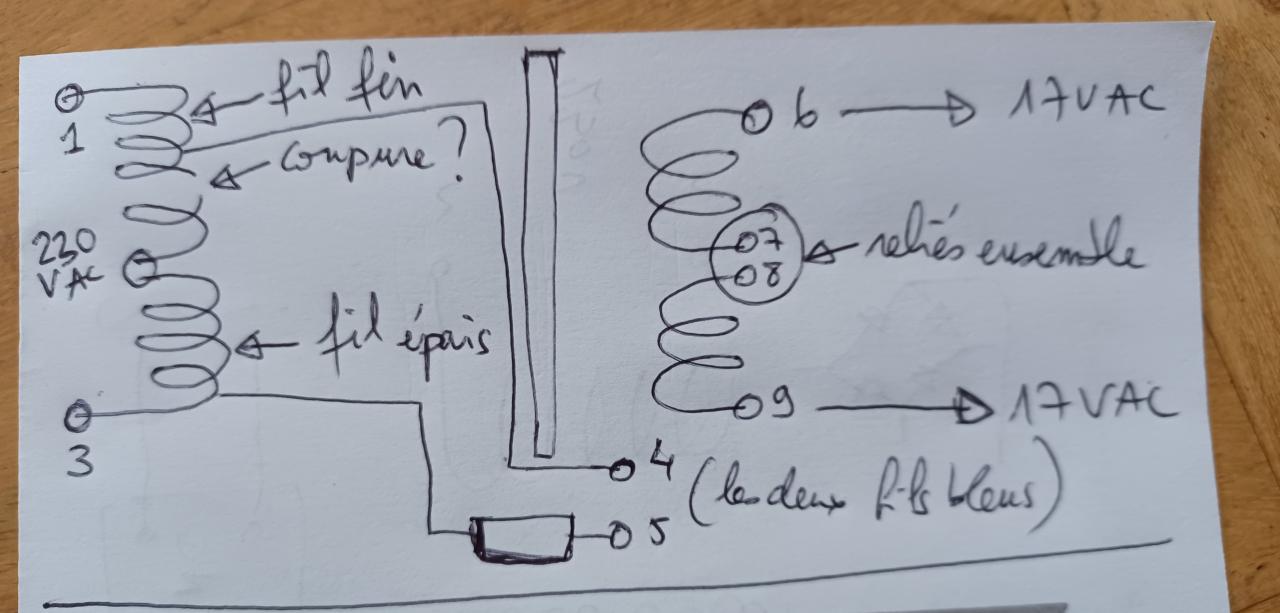 fil fin
1
6
17VAC
coupure ?
230
VAC
07
08
reliés ensemble
fil épais
9
17VAC
3
4
(les deux fils bleus)
5